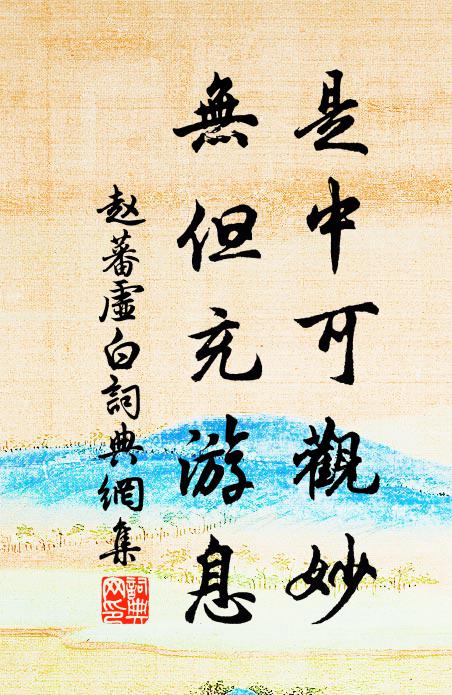 是中可觀妙
無但充游息
赵蕃虛白詞典網集
詞典